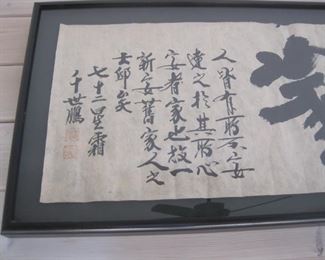 人皆有所不安
達之於其所心
安者家也故一
新安舊家人之
矣
七十二星霜
世鵬